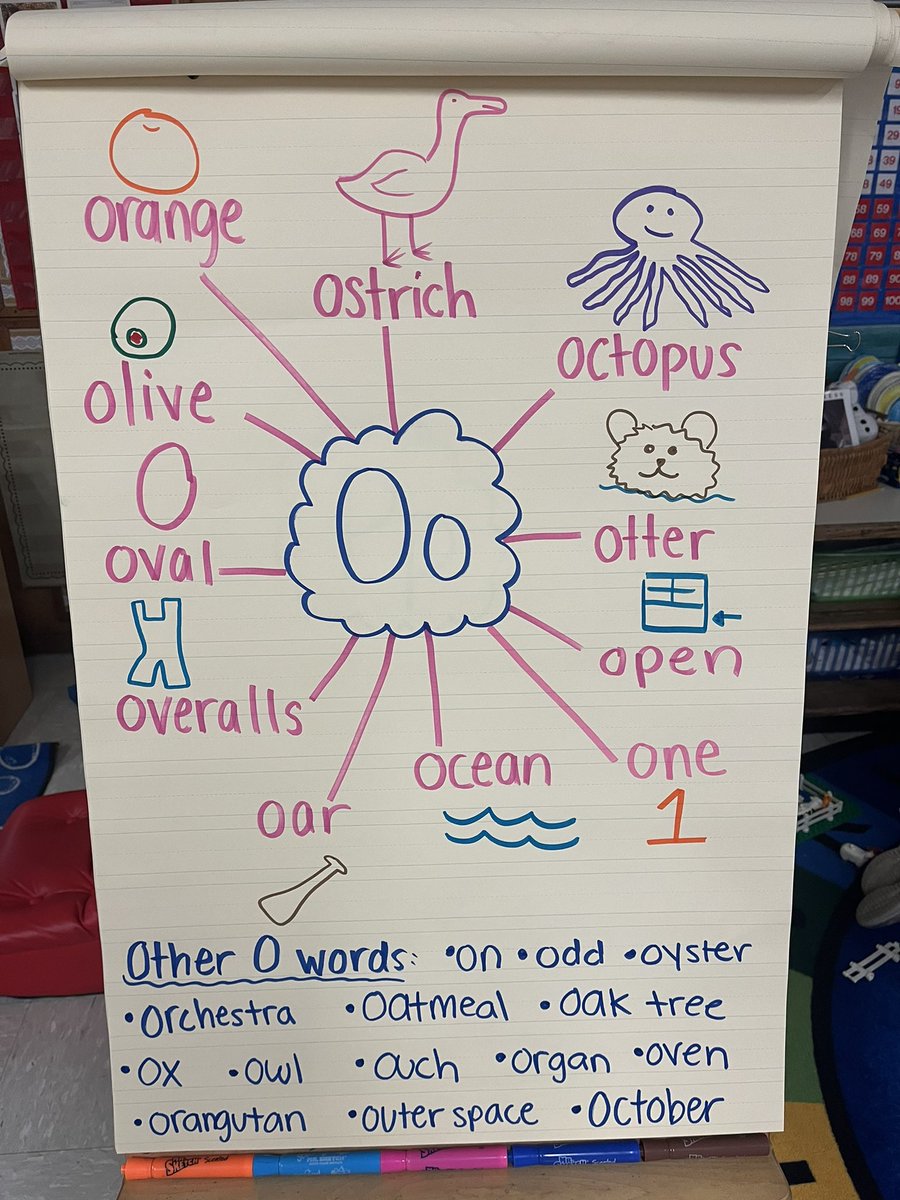 orange
ostrich
octopus
olive
Oo
otter
oval
open
overalls
one
ocean
oar
1
Other O words: •on •odd •oyster
•orchestra •oatmeal •oak tree
•ox •owl •ouch •organ •oven
•orangutan •outer space •October